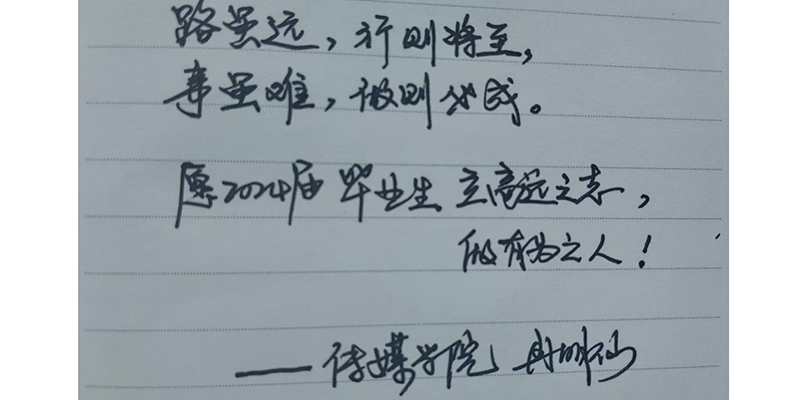 路虽远，行则将至，
事虽难，做则必成。
愿2024届毕业生立高远之志，
做有为之人！
——传媒学院